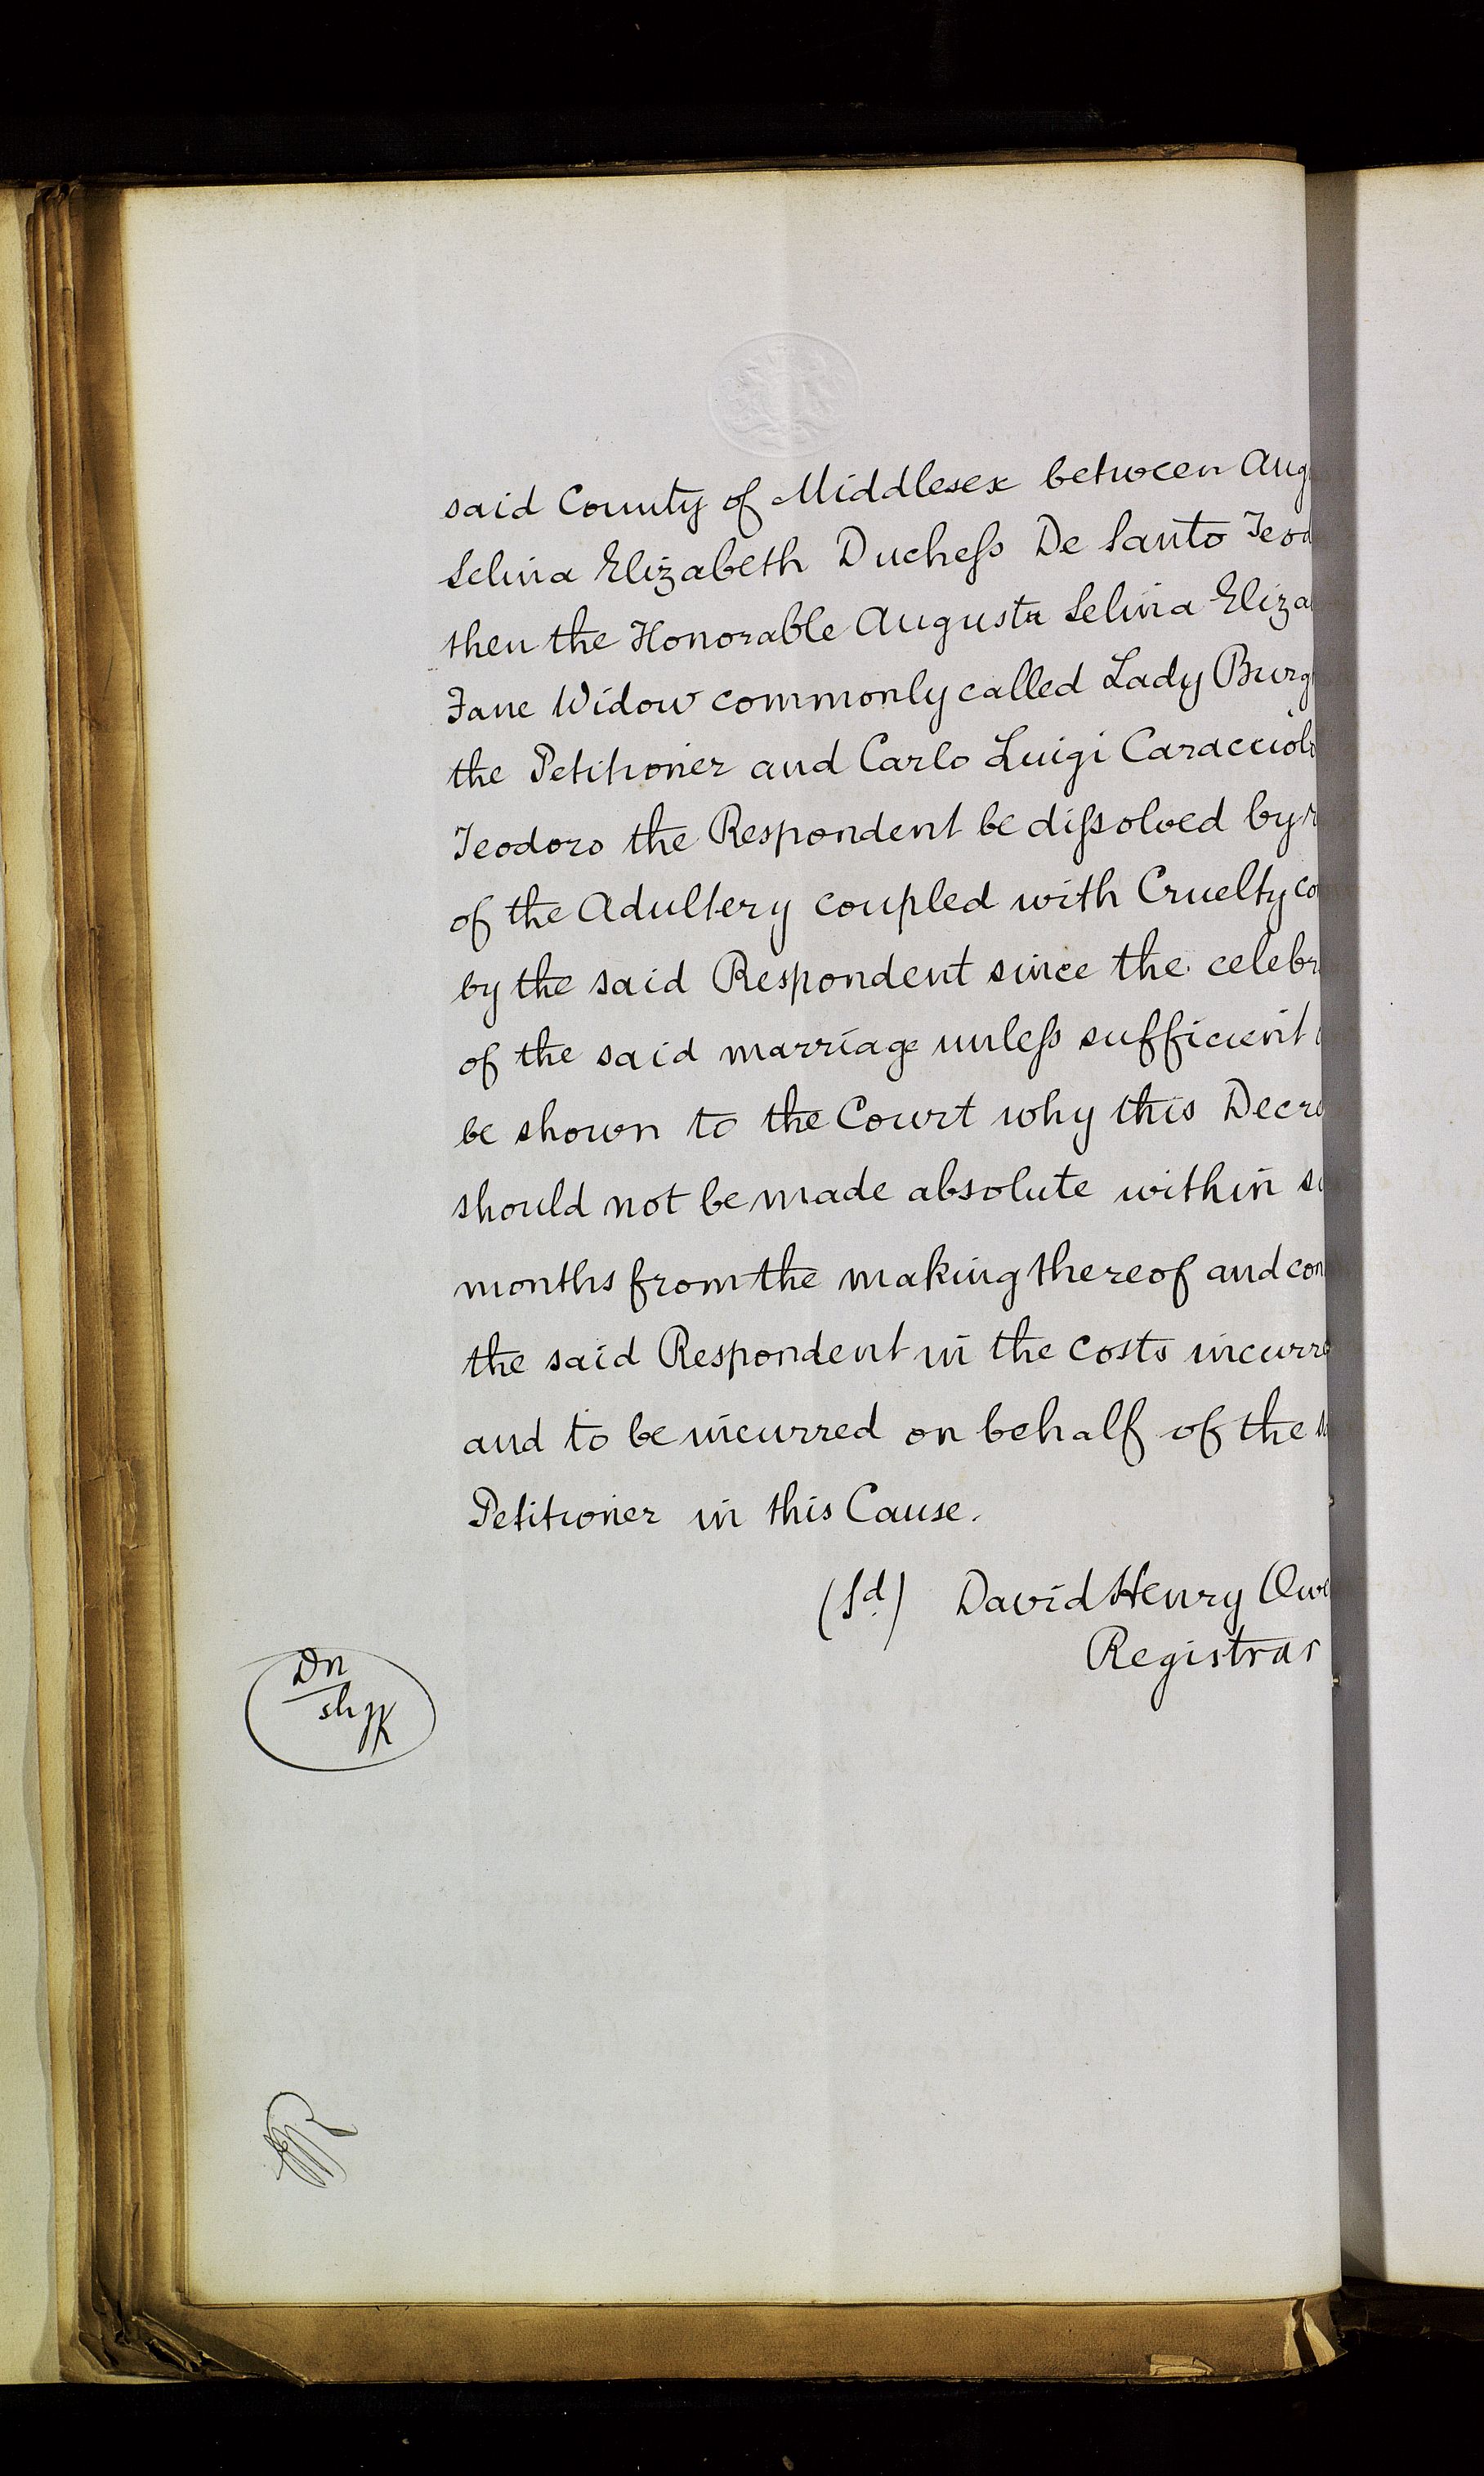 said County of Middlesex between Aug
Selina Elizabeth Duchess De Santo Teod
then the Honorable Augusta Selina Eliza
Fane Widow commonly called Lady Burg
the Petitioner and Carlo Luigi Caracciolo
Teodoro the Respondent be dissolved by r
of the Adultery coupled with Cruelty co
by the said Respondent since the celebr
of the said marriage unless sufficient
be shown to the Court why this Decre
should not be made absolute within si
months from the making thereof and con
the said Respondent in the costs incurre
and to be incurred on behalf of the s
Petitioner in this Cause.
(Sd.) David Henry Owe
Registrar